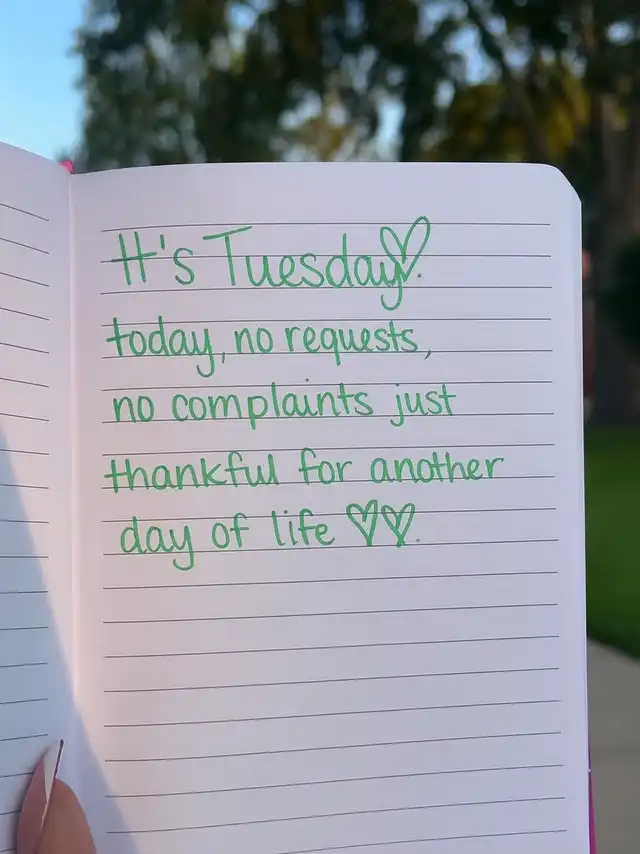 It's Tuesday♡.
today, no requests,
no complaints just
thankful for another
day of life ♡♡.